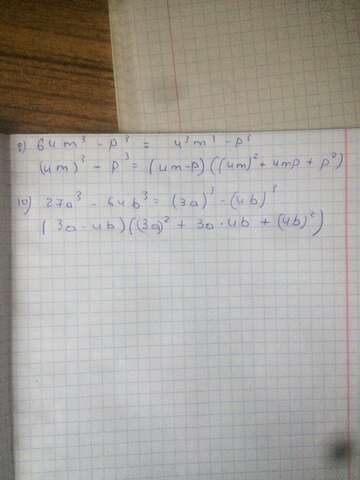 8) 64m³ - p³ = 4³m³ - p³
(4m)³ - p³ = (4m-p)((4m)² + 4mp + p²)
10) 27a³ - 64b³ = (3a)³ - (4b)³
(3a - 4b)((3a)² + 3a · 4b + (4b)²)